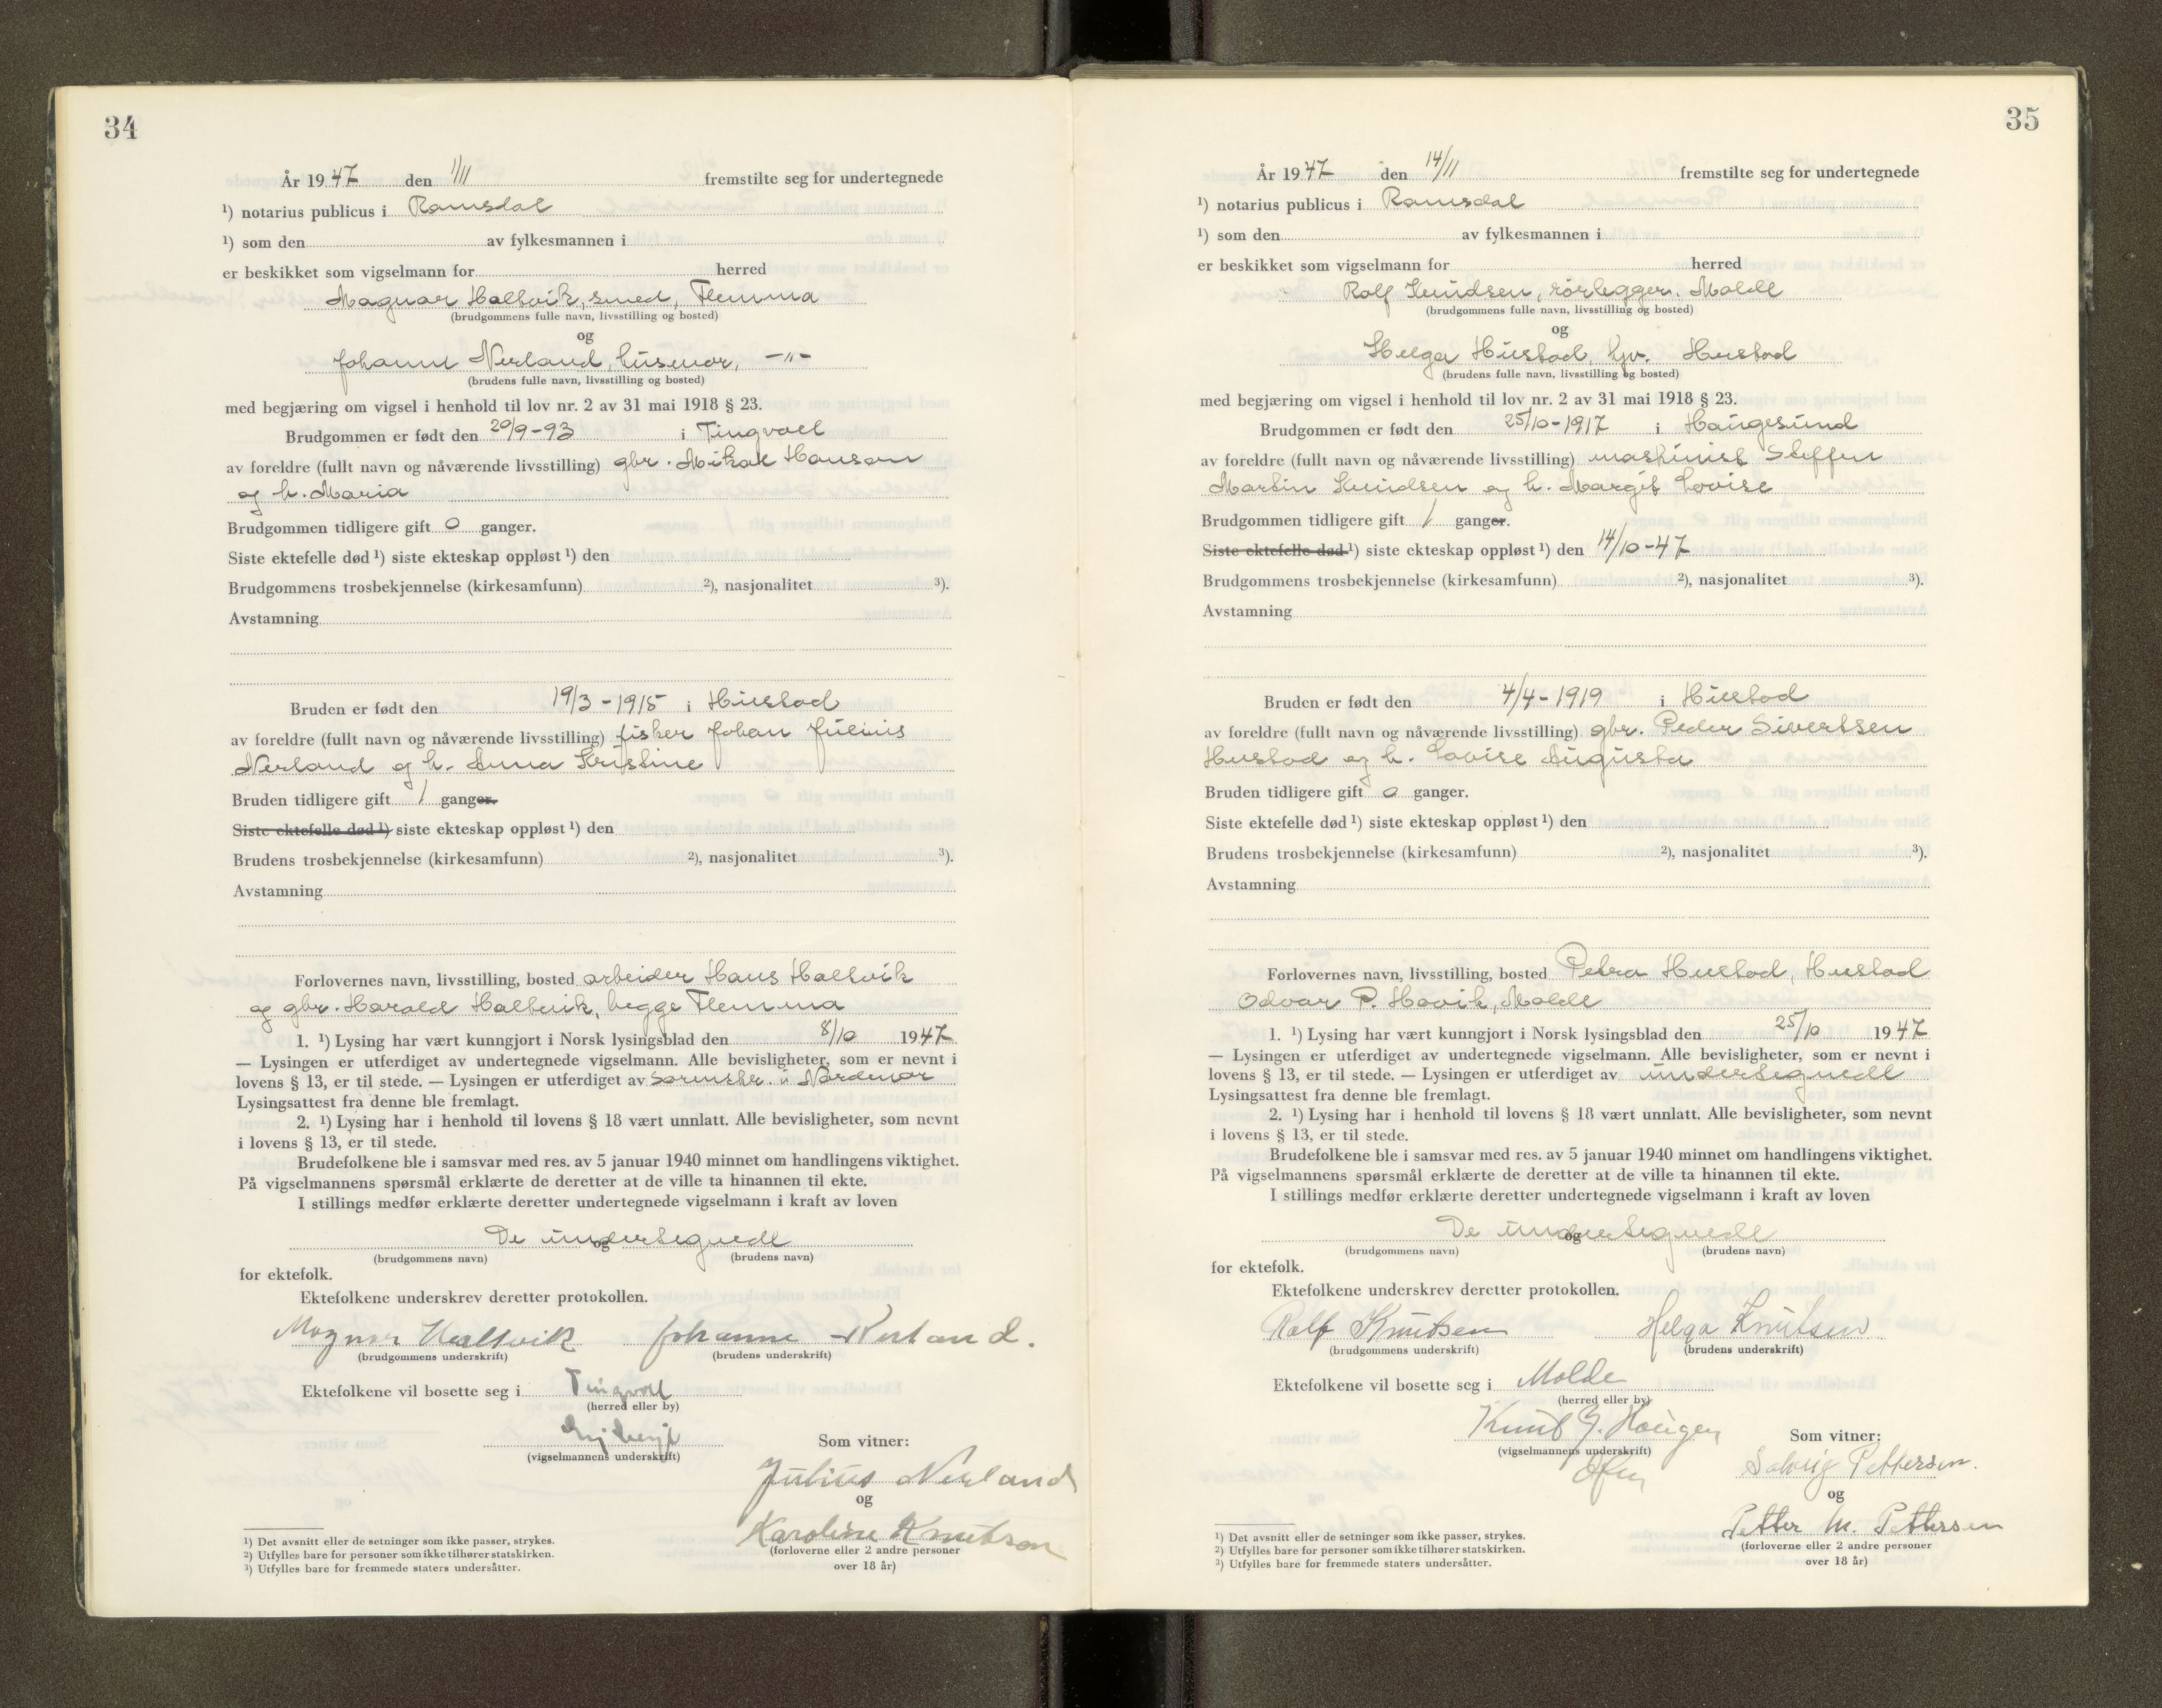 34
År 1947 den 1/11 fremstilte seg for undertegnede
¹) notarius publicus i Romsdal
¹) som den av fylkesmannen i
er beskikket som vigselmann for herred
Magnar Hallvik, smed, Flemma
(brudgommens fulle navn, livsstilling og bosted)
og
Johanne Nerland, husmor, -"-
(brudens fulle navn, livsstilling og bosted)
med begjæring om vigsel i henhold til lov nr. 2 av 31 mai 1918 § 23.
Brudgommen er født den 20/9-93 i Tingvoll
av foreldre (fullt navn og nåværende livsstilling) gbr. Mikal Hansen
og h. Maria
Brudgommen tidligere gift 0 ganger.
Siste ektefelle død ¹) siste ekteskap oppløst ¹) den
Brudgommens trosbekjennelse (kirkesamfunn) ²), nasjonalitet ³).
Avstamning
Bruden er født den 19/3-1915 i Hustad
av foreldre (fullt navn og nåværende livsstilling) fisker Johan Julius
Nerland og h. Anna Kristine
Bruden tidligere gift 1 ganger.
Siste ektefelle død ¹) siste ekteskap oppløst ¹) den
Brudens trosbekjennelse (kirkesamfunn) ²), nasjonalitet ³).
Avstamning
Forlovernes navn, livsstilling, bosted arbeider Hans Hallvik
og gbr. Harald Hallvik, begge Flemma
1. ¹) Lysing har vært kunngjort i Norsk lysingsblad den 8/10 1947
— Lysingen er utferdiget av undertegnede vigselmann. Alle bevisligheter, som er nevnt i
lovens § 13, er til stede. — Lysingen er utferdiget av sorenskr. i Nordmør
Lysingsattest fra denne ble fremlagt.
2. ¹) Lysing har i henhold til lovens § 18 vært unnlatt. Alle bevisligheter, som nevnt
i lovens § 13, er til stede.
Brudefolkene ble i samsvar med res. av 5 januar 1940 minnet om handlingens viktighet.
På vigselmannens spørsmål erklærte de deretter at de ville ta hinannen til ekte.
I stillings medfør erklærte deretter undertegnede vigselmann i kraft av loven
De undertegnede
og
(brudgommens navn) (brudens navn)
for ektefolk.
Ektefolkene underskrev deretter protokollen.
Magnar Hallvik Johanne Nerland.
(brudgommens underskrift) (brudens underskrift)
Ektefolkene vil bosette seg i Tingvoll
(herred eller by)
(vigselmannens underskrift)
Som vitner:
Julius Nerland
og
Karoline Knutson
(forloverne eller 2 andre personer
over 18 år)
¹) Det avsnitt eller de setninger som ikke passer, strykes.
²) Utfylles bare for personer som ikke tilhører statskirken.
³) Utfylles bare for fremmede staters undersåtter.
35
År 1947 den 14/11 fremstilte seg for undertegnede
¹) notarius publicus i Romsdal
¹) som den av fylkesmannen i
er beskikket som vigselmann for herred
Rolf Knudsen, rørlegger, Molde
(brudgommens fulle navn, livsstilling og bosted)
og
Helga Hustad, hjv. Hustad
(brudens fulle navn, livsstilling og bosted)
med begjæring om vigsel i henhold til lov nr. 2 av 31 mai 1918 § 23.
Brudgommen er født den 25/10-1917 i Haugesund
av foreldre (fullt navn og nåværende livsstilling) maskinist Steffen
Martin Knudsen og h. Margit Lovise
Brudgommen tidligere gift 1 ganger.
Siste ektefelle død ¹) siste ekteskap oppløst ¹) den 14/10-47
Brudgommens trosbekjennelse (kirkesamfunn) ²), nasjonalitet ³).
Avstamning
Bruden er født den 4/4-1919 i Hustad
av foreldre (fullt navn og nåværende livsstilling) gbr. Peder Sivertsen
Hustad og h. Lovise Augusta
Bruden tidligere gift 0 ganger.
Siste ektefelle død ¹) siste ekteskap oppløst ¹) den
Brudens trosbekjennelse (kirkesamfunn) ²), nasjonalitet ³).
Avstamning
Forlovernes navn, livsstilling, bosted Petra Hustad, Hustad
Odvar P. Hovik, Molde
1. ¹) Lysing har vært kunngjort i Norsk lysingsblad den 25/10 1947
— Lysingen er utferdiget av undertegnede vigselmann. Alle bevisligheter, som er nevnt i
lovens § 13, er til stede. — Lysingen er utferdiget av undertegnede
Lysingsattest fra denne ble fremlagt.
2. ¹) Lysing har i henhold til lovens § 18 vært unnlatt. Alle bevisligheter, som nevnt
i lovens § 13, er til stede.
Brudefolkene ble i samsvar med res. av 5 januar 1940 minnet om handlingens viktighet.
På vigselmannens spørsmål erklærte de deretter at de ville ta hinannen til ekte.
I stillings medfør erklærte deretter undertegnede vigselmann i kraft av loven
De undertegnede
og
(brudgommens navn) (brudens navn)
for ektefolk.
Ektefolkene underskrev deretter protokollen.
Rolf Knutsen Helga Knutsen
(brudgommens underskrift) (brudens underskrift)
Ektefolkene vil bosette seg i Molde
(herred eller by)
Knut G. Haugen
(vigselmannens underskrift)
Som vitner:
Solvig Pettersen.
og
Petter M. Pettersen
(forloverne eller 2 andre personer
over 18 år)
¹) Det avsnitt eller de setninger som ikke passer, strykes.
²) Utfylles bare for personer som ikke tilhører statskirken.
³) Utfylles bare for fremmede staters undersåtter.